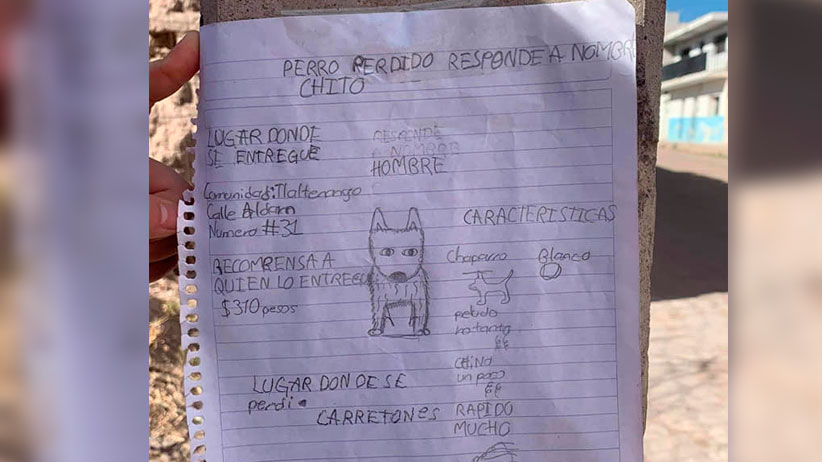 PERRO PERDIDO RESPONDE A NOMBRE
CHITO
LUGAR DONDE
SE ENTREGUE
RESPONDE
A NOMBRE
HOMBRE
Comunidad: Tlaltenango
Calle Aldam
Numero #31
RECOMPENSA A
QUIEN LO ENTREGUE
$310 pesos
CARACTERISTICAS
Chaparro
Blanco
peludo
no tanto
CHiNo
un poco
RAPIDO
MUCHO
LUGAR DONDE SE
perdi
CARRETONES